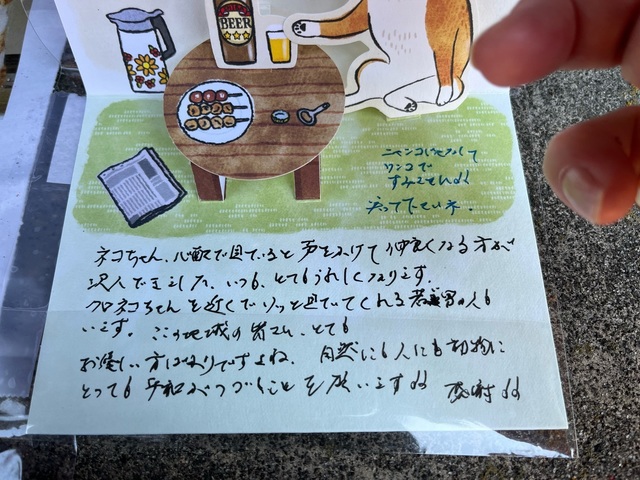 BEER
ニャンコじゃなくて
ワンコで
すみませんが
笑って下さいネ。
ネコちゃん、心配で見ていると声をかけて仲良くなる方が
沢人でました、いつも、とてもうれしくなります。
クロネコちゃんを近くでソッと見ていてくれる 男の人も
います。ここの地域の皆さん、とても
お優しい方ばかりですよね。自然にも人にも動物に
とっても平和がつづくことを願います
感謝